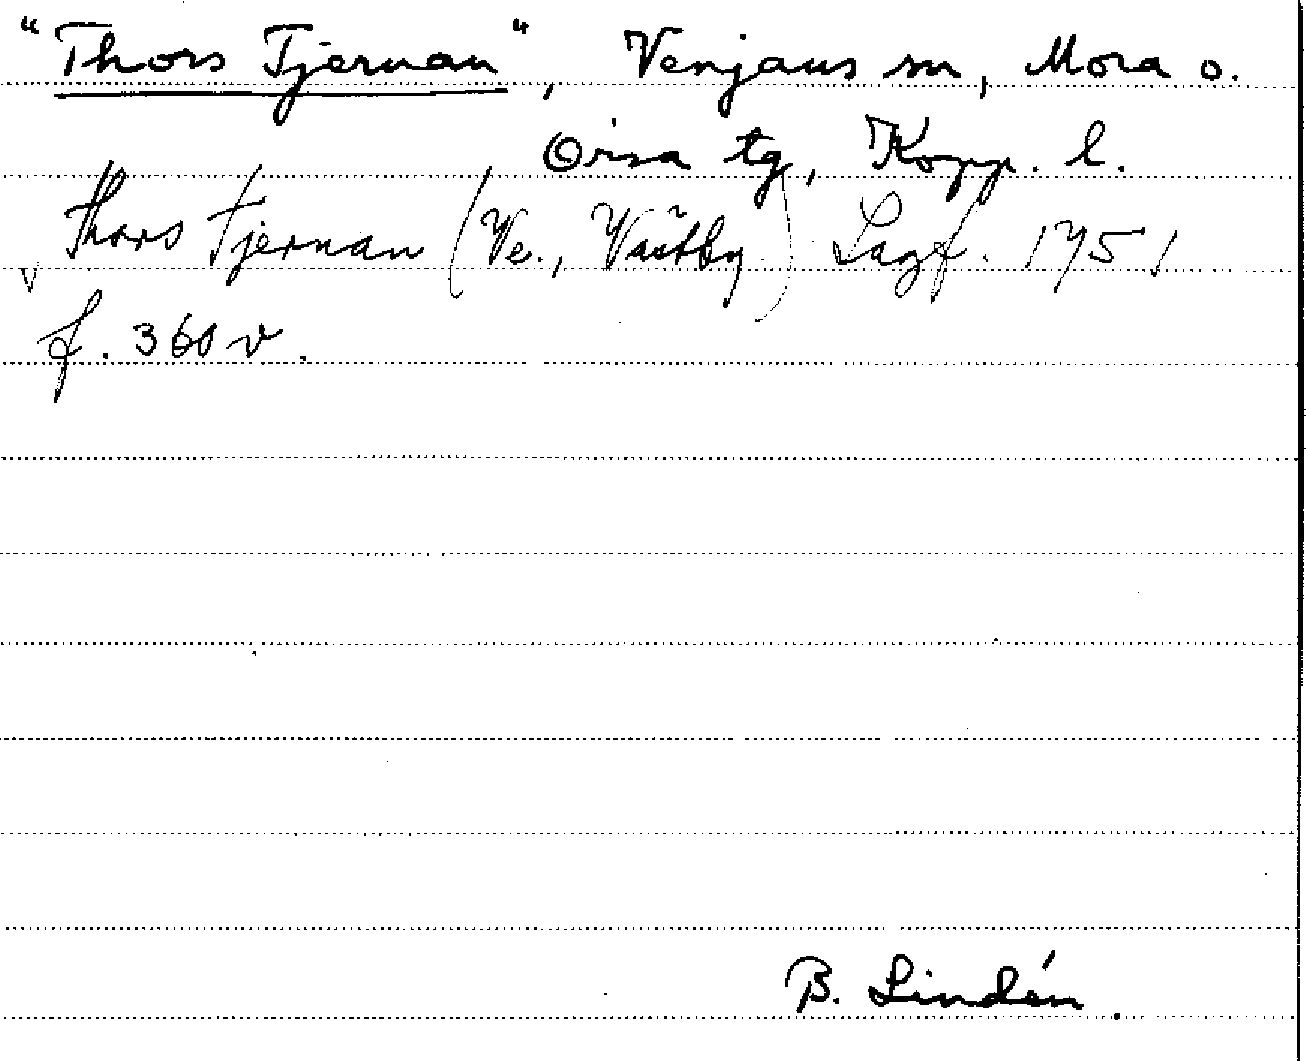 "Thors Tjernan", Venjans sn, Mora o.
Orsa tg, Kopp. l.
v Thors Tjernan (Ve., Västby) Lagf. 1751
f. 360 v.
B. Lindén.